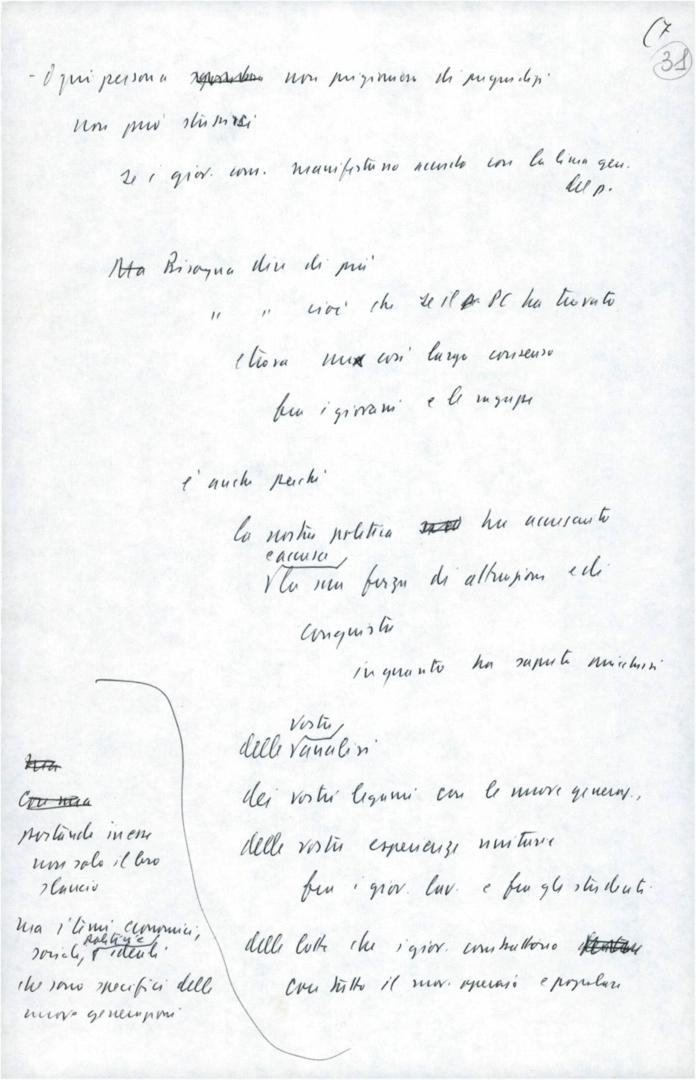 (7
31
- Ogni persona non prigioniera di pregiudizi
non può stupirsi
se i giov. com. manifestano accordo con la linea gen.
del p.
Ma Bisogna dire di più
" " cioè che se il PC ha trovato
e trova un così largo consenso
fra i giovani e le ragazze
è anche perché
la nostra politica ha accresciuto
e accresce
la sua forza di attrazione e di
conquista
in quanto ha saputo arricchirsi
vostre
delle analisi
dei vostri legami con le nuove generaz.,
delle vostre esperienze unitarie
fra i giov. lav. e fra gli studenti
delle lotte che i giov. combattono
con tutto il mov. operaio e popolare
portando in esse
non solo il loro
slancio
ma i temi economici,
politici e
sociali, ideali
che sono specifici delle
nuove generazioni